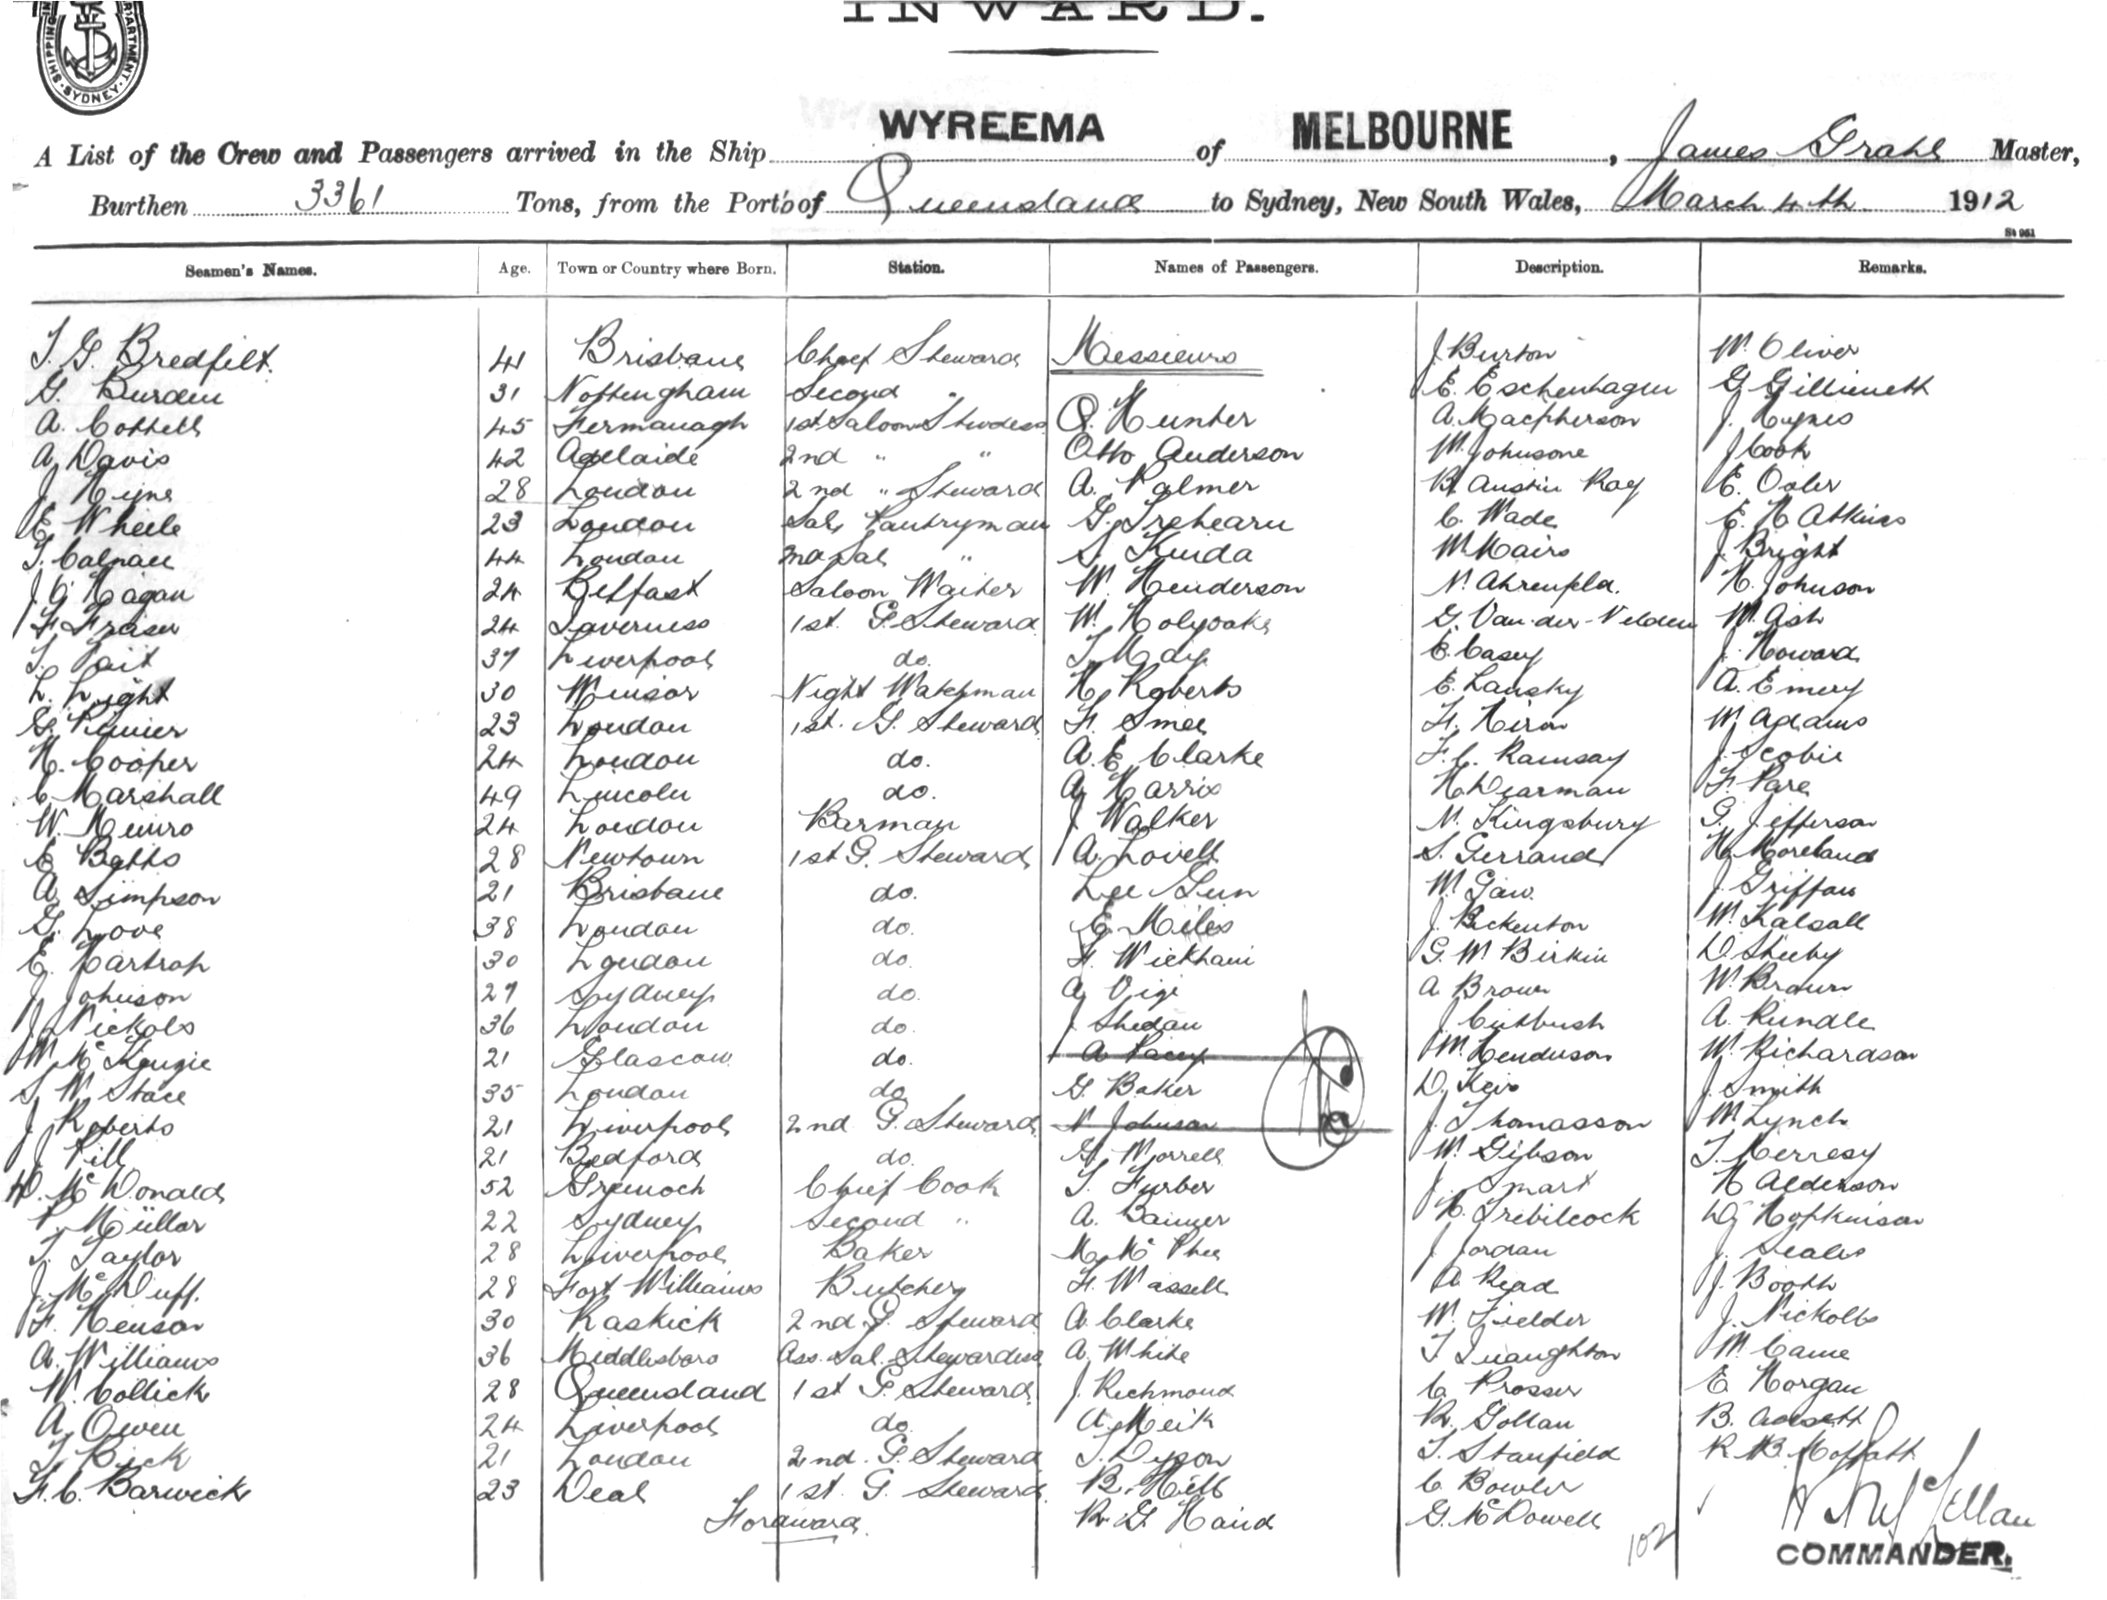 INWARD.
SHIPPING DEPARTMENT SYDNEY
A List of the Crew and Passengers arrived in the Ship WYREEMA of MELBOURNE, James Grahl Master,
Burthen 3361 Tons, from the Port's of Queensland to Sydney, New South Wales, March 4th 1912
Seamen's Names. Age. Town or Country where Born. Station. Names of Passengers. Description. Remarks.
T. G. Bredfilt. 41 Brisbane Chief Steward Messieurs J Burton W. Oliver
G. Burden 31 Nottingham Second " E. Eschenhagen G.
A. Cottell 45 Fermanagh 1st Saloon Stwdess Q. Hunter A. Macpherson J. Hynes
A. Davis 42 Adelaide 2nd " " Otto Anderson W. Johnsone J Cook
J. Hyne 28 London 2nd " Steward A. Palmer B. Austin Ray E. Osler
E. Wheele 23 London Sal. Pantryman G. Trehearn C. Wade E. H Atkins
T. Calnan 44 London 2nd Sal " S. Kuida W. Mairs J. Bright
J. C. Hagan 24 Belfast Saloon Waiter W. Henderson N. Ahrenfeld. H. Johnson
F. Fraser 24 Inverness 1st. G. Steward W. Holyoake G. Van-der-Velden W. Ash
T. Tait 37 Liverpool do. T. May E. Casey J. Howard
L. Light 30 Winsor Night Watchman H. Roberts E. Lansky A. Emery
G. 23 London 1st. G. Steward F. Smee F. Hiron W. Adams
H. Cooper 24 London do. A. E. Clarke F. C. Ramsay J. Scobie
C. Marshall 49 Lincoln do. A. Harris H Dearman F. Pare
W. Munro 24 London Barman J Walker N. Kingsbury G. Jefferson
E Batts 28 Newtown 1st G. Steward A. Lovell S. Gerrand H. Moreland
A. Simpson 21 Brisbane do. Lee Sun W. Gaw. J. Griffan
G. Love 38 London do. E. Miles J. Bickenton W. Kalsall
E. Hartrap 30 London do. F. Wickham G. W Birkin D Sheeby
J. Johnson 27 Sydney do. A. Vige A Brown W. Brown
J. Nickols 36 London do. J. Shedan J. Cutbush A. Rundle
W. McKenzie 21 Glascow do. A Pacey W. Henderson W. Richardson
S. W Stace 35 London do G. Baker D. Keir J. Smith
J. Roberts 21 Liverpool 2nd G. Steward N Johnson J. Thomasson W. Lynch
J. Pill 21 Bedford do. G. Worrell W. Gibson T. Merresy
D. McDonald 52 Greenoch Chief Cook T. Furber J. Smart H Alderson
P. Müllar 22 Sydney Second " A. H. Trebilcock D. Hopkinson
T. Taylor 28 Liverpool Baker M. McPhee J. Jordan J. Seales
J. McDuff. 28 Fort Williams Butcher F. Wassell A Read J. Booth
F. Henson 30 Raskick 2nd G. Steward A. Clarke W. Fielder J. Nickolls
A. Williams 36 Middlesboro Ass. Sal. Stewardess A. White T W. Came
W. Collick 28 Queensland 1st G. Steward J. Richmond C. Prosser E. Horgan
A. Owen 24 Liverpool do. A. Meik R. Gollan B.
T. Bick 21 London 2nd. G. Steward T. Dyson T. Stanfield R. B. Moffatt
F. C. Barwick 23 Deal 1st. G. Steward B. Hill C Bowler
Forward. R. G. Hand G. McDowell
102
McLellan
COMMANDER.